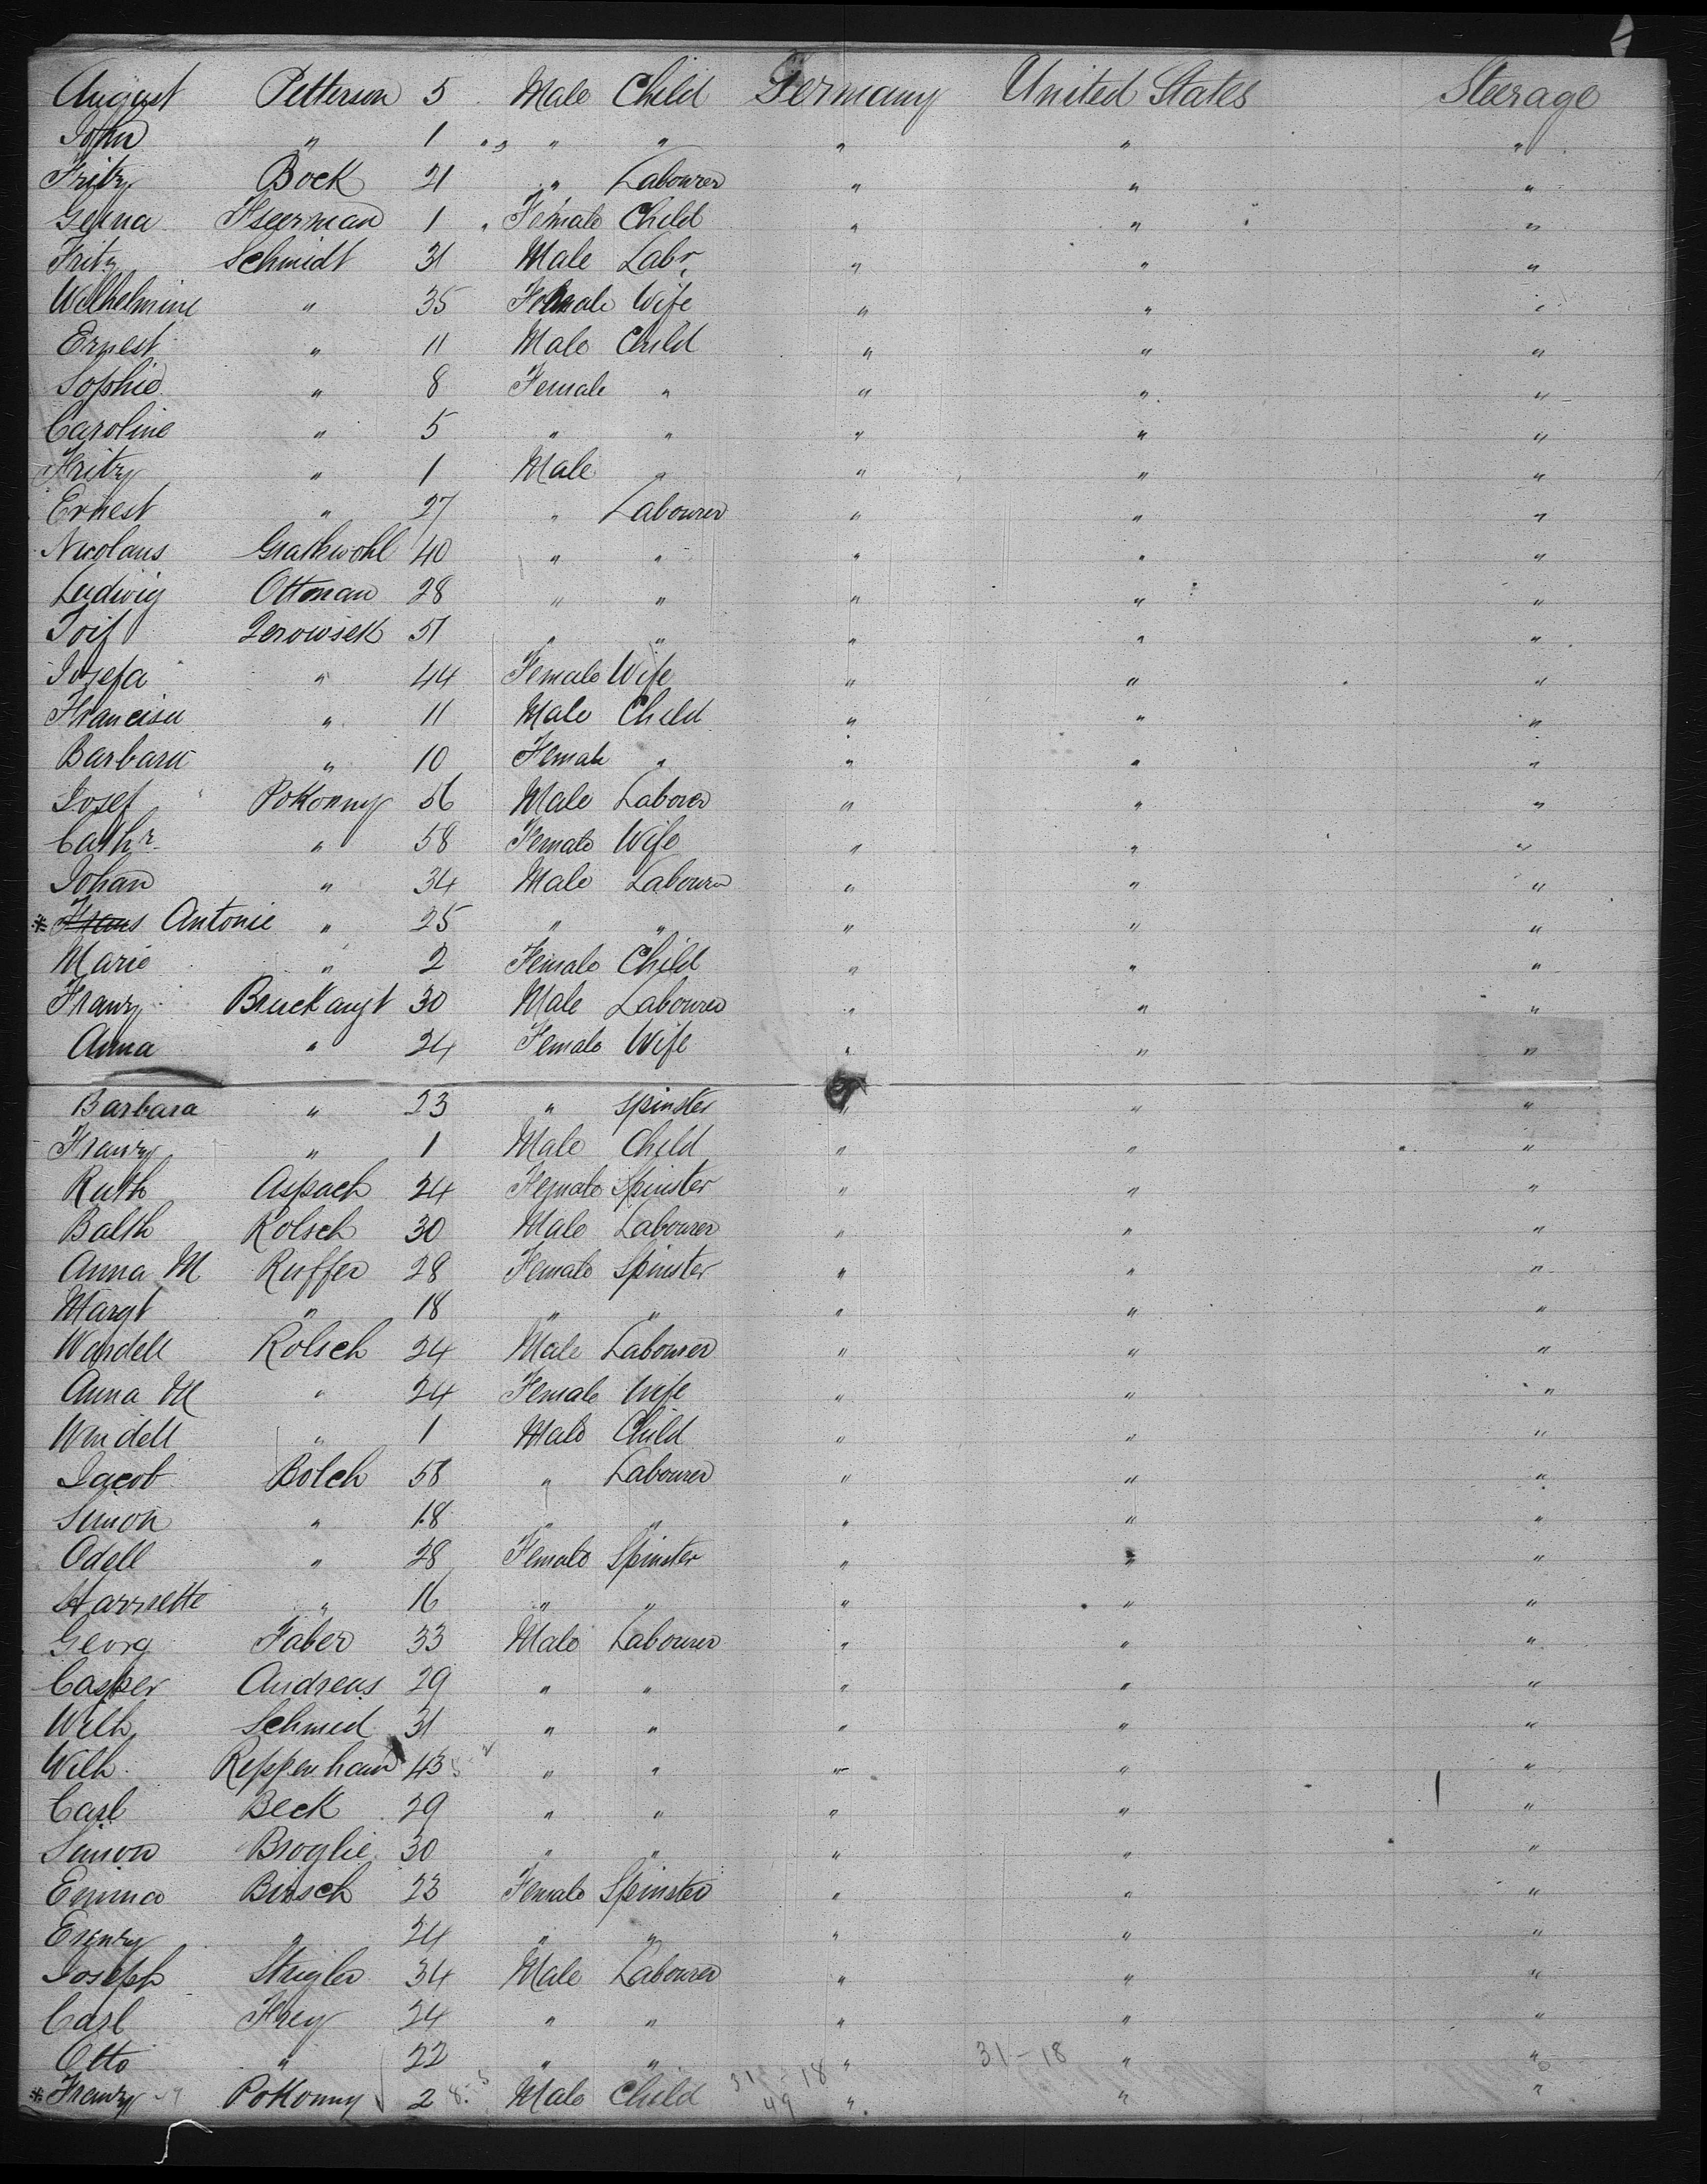 August Petterson 5 Male Child Germany United States Steerage
John " 1 " " " " "
Fritz Bock 21 " Labourer " " "
Gesina Heerman 1 Female Child " " "
Fritz Schmidt 31 Male Labr " " "
Wilhelmine " 35 Female Wife " " "
Ernest " 11 Male Child " " "
Sophie " 8 Female " " " "
Caroline " 5 " " " " "
Fritz " 1 Male " " " "
Ernest " 27 " Labourer " " "
Nicolaus Grathwohl 40 " " " " "
Ludwig Ottman 28 " " " " "
51 " " " " "
Josefa " 44 Female Wife " " "
" 11 Male Child " " "
Barbara " 10 Female " " " "
Josef PoKonny 56 Male Laborer " " "
Cathr " 58 Female Wife " " "
Johan " 34 Male Labourer " " "
* Frans Antonie " 25 " " " " "
Marie " 2 Female Child " " "
Franz 30 Male Labourer " " "
Anna " 24 Female Wife " " "
Barbara " 23 " Spinster " " "
Franz " 1 Male Child " " "
Ruth Aspach 24 Female Spinster " " "
Balth Rolsch 30 Male Labourer " " "
Anna M Ruffer 28 Female Spinster " " "
Margt " 18 " " " " "
Wendell Rolsch 24 Male Labourer " " "
Anna M " 24 Female Wife " " "
Wendell " 1 Male Child " " "
Jacob Bolch 58 " Labourer " " "
Simon " 18 " " " " "
Odell " 28 Female Spinster " " "
Harriette " 16 " " " " "
Georg Faber 33 Male Labourer " " "
Casper Andreas 29 " " " " "
Wilh Schmid 31 " " " " "
Wilh. Reppenhain 43 " " " " "
Carl Beck 29 " " " " "
Simon Broglie 30 " " " " "
Emma Birsch 23 Female Spinster " " "
" 24 " " " " "
Joseph Strigler 34 Male Labourer " " "
Carl Frey 24 " " " " "
Otto " 22 " " " 31-18 " "
* Franz PoKonny 2 Male Child 31-18 49 " " "